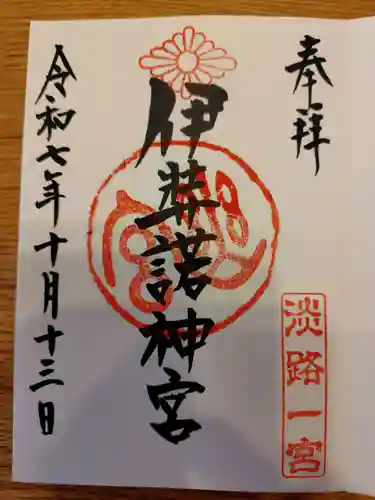 奉拝
淡路一宮
伊弉諾神宮
令和七年十月十三日